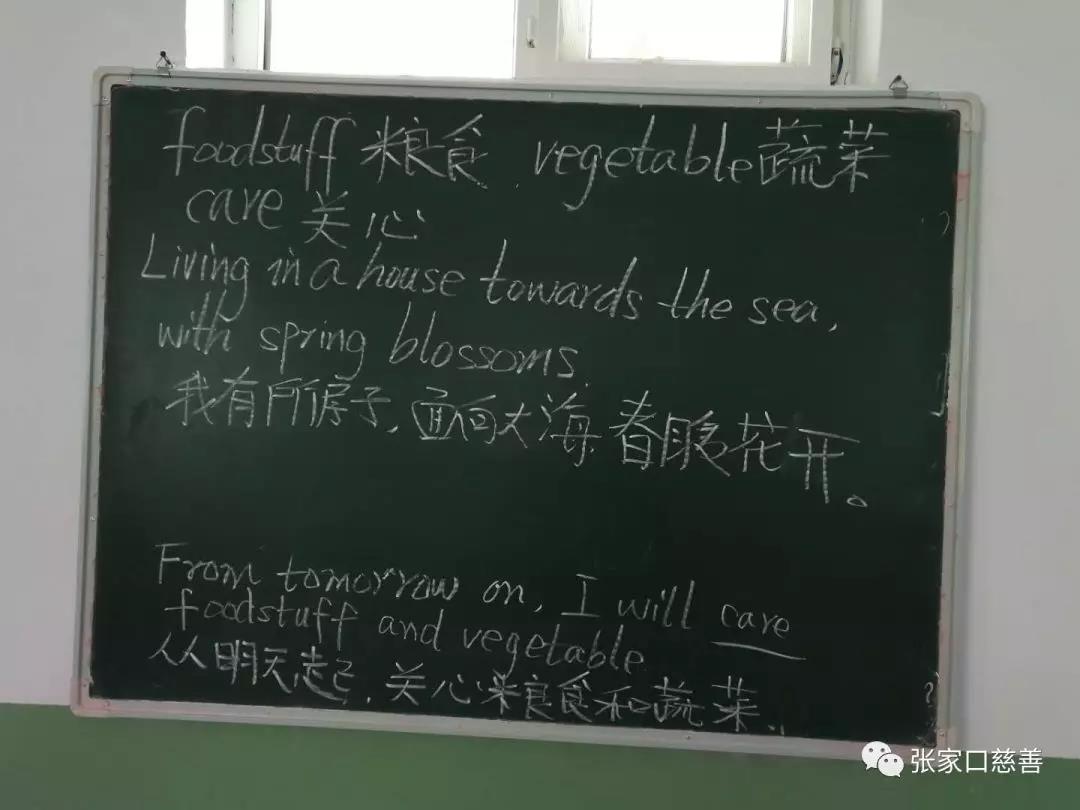 foodstuff 粮食. vegetable 蔬菜
care 关心
Living in a house towards the sea,
with spring blossoms.
我有所房子,面向大海,春暖花开。
From tomorrow on, I will care
foodstuff and vegetable
从明天起,关心粮食和蔬菜.
张家口慈善